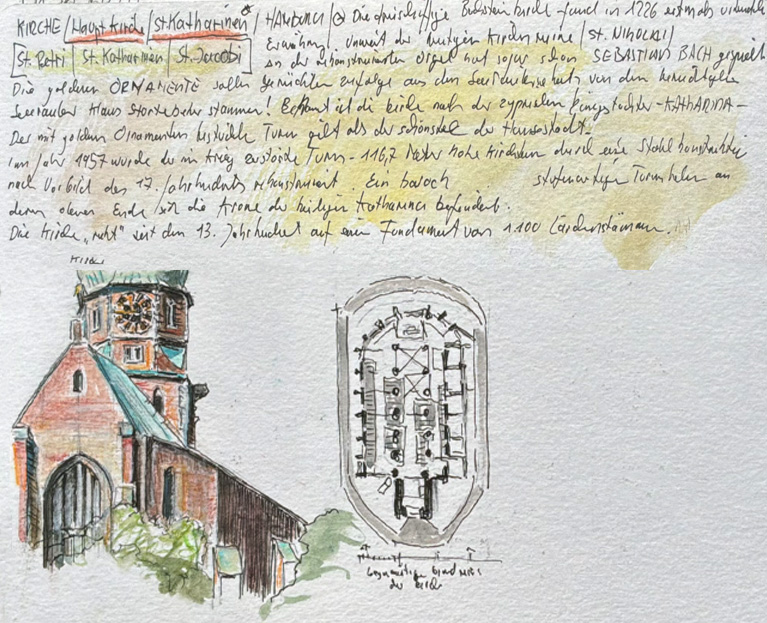 KIRCHE / Hauptkirche / St. Katharinen / HAMBURG / Die dreischiffige Backsteinkirche fand in 1226 erstmals
St. Petri | St. Katharinen | St. Jacobi
Erwähnung. Unweit der heutigen Kirchenruine / St. NIKOLAI /
an der rekonstruierten Orgel hat sogar schon SEBASTIAN BACH gespielt
Die goldenen ORNAMENTE sollen Gerüchten zufolge aus dem von dem
Seeräuber Klaus Störtebeker stammen! ist die Kirche nach der zyprischen Königstochter - KATHARINA -
Der mit goldenen Ornamenten bestückte Turm gilt als der schönste der Hansestadt.
Im Jahr 1957 wurde der im Krieg zerstörte Turm - 116,7 Meter hohe Kirchturm durch eine Stahlkonstruktion
nach Vorbild des 17. Jahrhunderts rekonstruiert. Ein barock stufenartiger Turmhelm an
deren oberen Ende sich die Krone der heiligen Katharina befindet.
Die Kirche „ruht" seit dem 13. Jahrhundert auf einem Fundament von 1100
Kirche
der Kirche